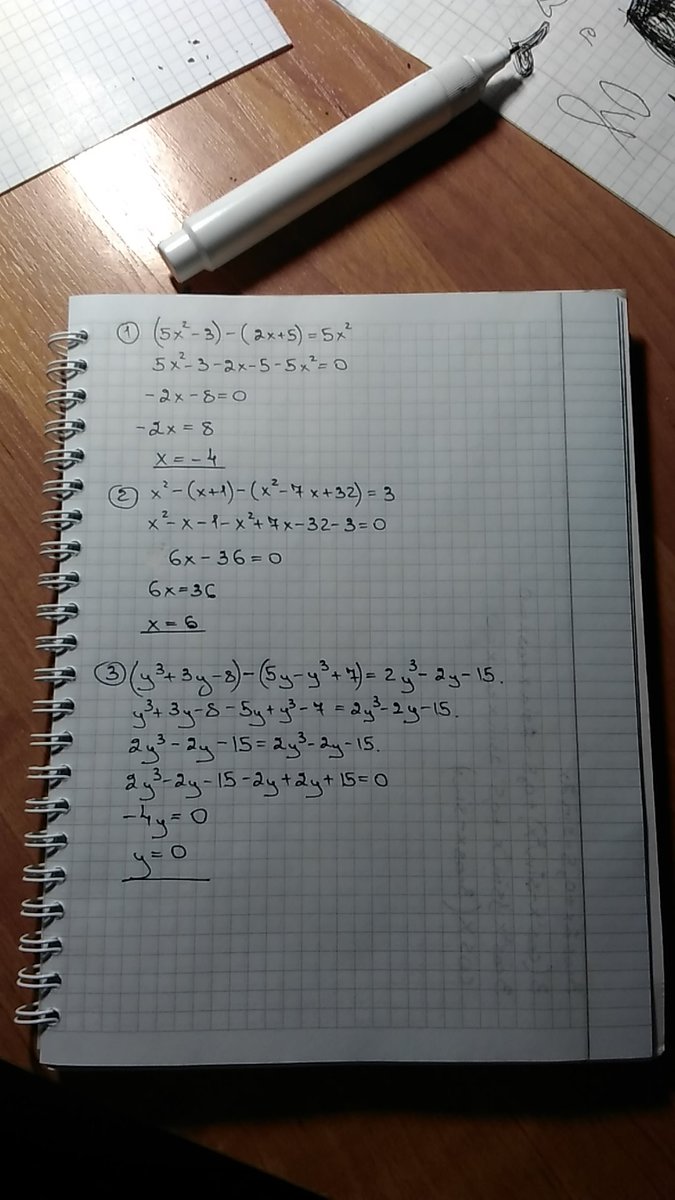 1 (5x²-3)-(2x+5)=5x²
5x²-3-2x-5-5x²=0
-2x-8=0
-2x=8
x=-4
2 x²-(x+1)-(x²-7x+32)=3
x²-x-1-x²+7x-32-3=0
6x-36=0
6x=36
x=6
3 (y³+3y-8)-(5y-y³+7)=2y³-2y-15.
y³+3y-8-5y+y³-7=2y³-2y-15.
2y³-2y-15=2y³-2y-15.
2y³-2y-15-2y+2y+15=0
-4y=0
y=0